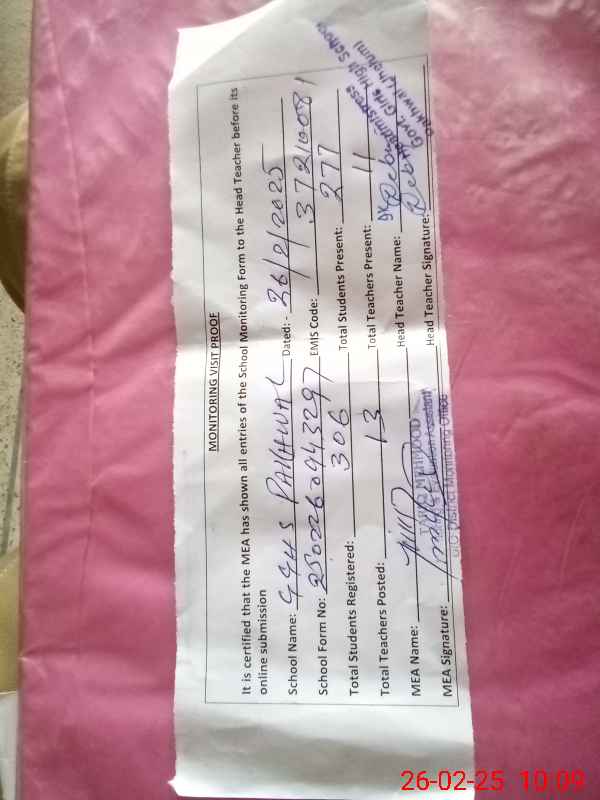 MONITORING VISIT PROOF
It is certified that the MEA has shown all entries of the School Monitoring Form to the Head Teacher before its
online submission
School Name: GGHS PAKHWAL Dated:- 26/2/2025
School Form No: EMIS Code: 37210081
Total Students Registered: 306 Total Students Present: 277
Total Teachers Posted: 13 Total Teachers Present: 11
MEA Name: Head Teacher Name:
MEA Signature: Head Teacher Signature:
District Monitoring Office
Govt. Girls High School
26-02-25 10:09